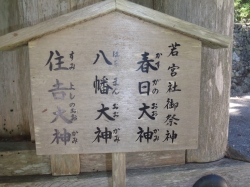 若宮社御祭神
春日大神
かすがのおおかみ
八幡大神
はちまんおおかみ
住吉大神
すみよしのおおかみ